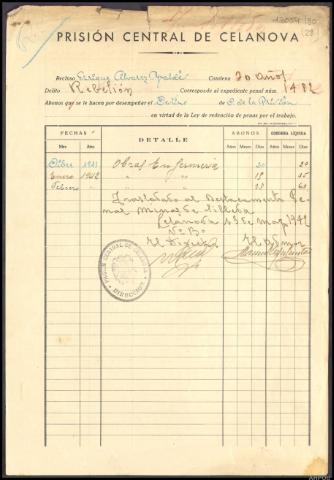 PRISIÓN CENTRAL DE CELANOVA
Recluso Enrique Alvarez Condena 30 años
Delito Rebelión Corresponde al expediente penal núm. 1482
Abonos que se le hacen por desempeñar el Destino de
en virtud de la Ley de redención de penas por el trabajo.
FECHAS DETALLE ABONOS CONDENA LÍQUIDA
Mes Año Años Meses Días Años Meses Días
Dibre 1941 Obras Enfermería 20 20
Enero 1942 " "
Febrero " "
Trasladado al Destacamento Pe-
nal Minas de Silleda
Celanova 13 de Mayo 1942
Vº Bº
El Director El
PRISIÓN CENTRAL DE CELANOVA
DIRECCIÓN